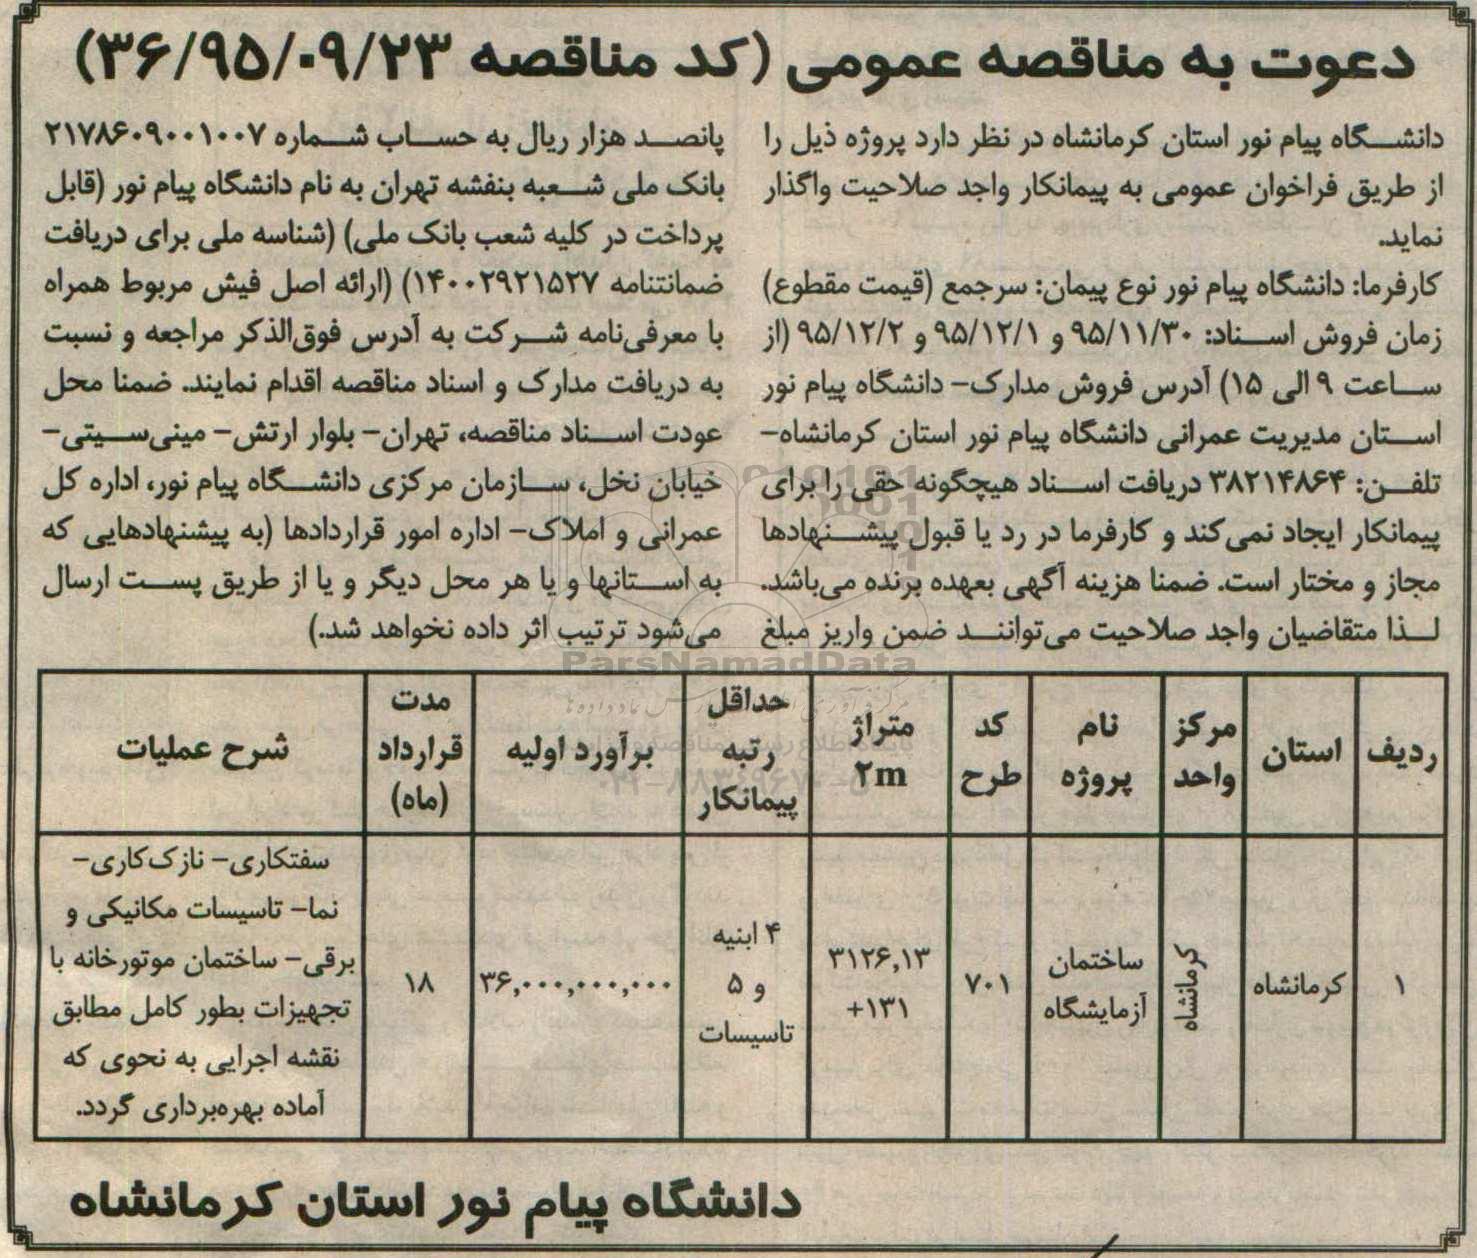 دعوت به مناقصه عمومی (کد مناقصه ۳۶/۹۵/۰۹/۲۳)
دانشگاه پیام نور استان کرمانشاه در نظر دارد پروژه ذیل را
از طریق فراخوان عمومی به پیمانکار واجد صلاحیت واگذار
نماید.
کارفرما: دانشگاه پیام نور نوع پیمان: سرجمع (قیمت مقطوع)
زمان فروش اسناد: ۹۵/۱۱/۳۰ و ۹۵/۱۲/۱ و ۹۵/۱۲/۲ (از
ساعت ۹ الی ۱۵) آدرس فروش مدارک- دانشگاه پیام نور
استان مدیریت عمرانی دانشگاه پیام نور استان کرمانشاه-
تلفن: ۳۸۲۱۴۸۶۴ دریافت اسناد هیچگونه حقی را برای
پیمانکار ایجاد نمی‌کند و کارفرما در رد یا قبول پیشنهادها
مجاز و مختار است. ضمنا هزینه آگهی بعهده برنده می‌باشد.
لذا متقاضیان واجد صلاحیت می‌توانند ضمن واریز مبلغ
پانصد هزار ریال به حساب شماره ۲۱۷۸۶۰۹۰۰۱۰۰۷
بانک ملی شعبه بنفشه تهران به نام دانشگاه پیام نور (قابل
پرداخت در کلیه شعب بانک ملی) (شناسه ملی برای دریافت
ضمانتنامه ۱۴۰۰۲۹۲۱۵۲۷) (ارائه اصل فیش مربوط همراه
با معرفی‌نامه شرکت به آدرس فوق‌الذکر مراجعه و نسبت
به دریافت مدارک و اسناد مناقصه اقدام نمایند. ضمنا محل
عودت اسناد مناقصه، تهران- بلوار ارتش- مینی‌سیتی-
خیابان نخل، سازمان مرکزی دانشگاه پیام نور، اداره کل
عمرانی و املاک- اداره امور قراردادها (به پیشنهادهایی که
به استانها و یا هر محل دیگر و یا از طریق پست ارسال
می‌شود ترتیب اثر داده نخواهد شد.)
ParsNamadData
ردیف
استان
مرکز
واحد
نام
پروژه
کد
طرح
متراژ
۲m
حداقل
رتبه
پیمانکار
برآورد اولیه
مدت
قرارداد
(ماه)
شرح عملیات
۱
کرمانشاه
کرمانشاه
ساختمان
آزمایشگاه
۷۰۱
۳۱۲۶,۱۳
+۱۳۱
۴ ابنیه
و ۵
تاسیسات
۳۶,۰۰۰,۰۰۰,۰۰۰
۱۸
سفتکاری- نازک‌کاری-
نما- تاسیسات مکانیکی و
برقی- ساختمان موتورخانه با
تجهیزات بطور کامل مطابق
نقشه اجرایی به نحوی که
آماده بهره‌برداری گردد.
دانشگاه پیام نور استان کرمانشاه